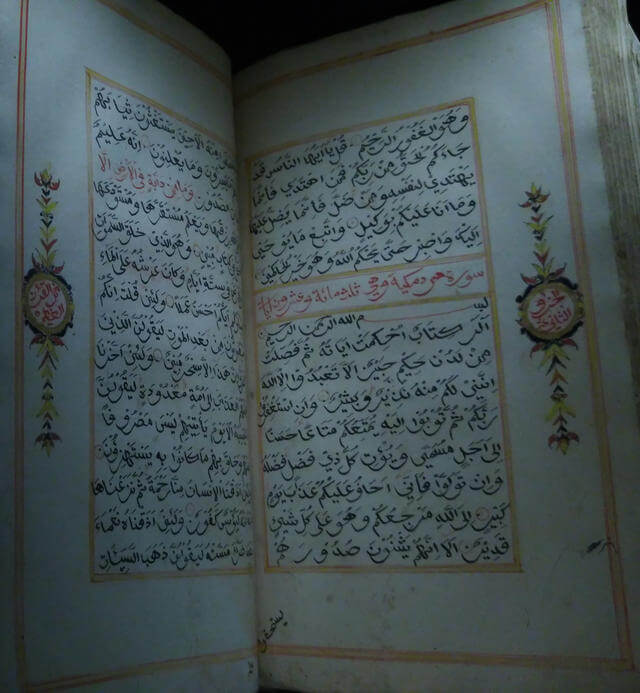 وهو الغفور الرحيم قل يا ايها الناس قد
جاءكم الحق من ربكم فمن اهتدى فانما
يهتدى لنفسه ومن ضل فانما يضل عليها
وما انا عليكم بوكيل واتبع ما يوحى
اليك واصبر حتى يحكم الله وهو خير الحاكمين
سورة هود مكية وهي مائة وعشرون اية
بسم الله الرحمن الرحيم
الر كتاب احكمت اياته ثم فصلت
من لدن حكيم خبير الا تعبدوا الا الله
انني لكم منه نذير وبشير وان استغفروا
ربكم ثم توبوا اليه يمتعكم متاعا حسنا
الى اجل مسمى ويؤت كل ذي فضل فضله
وان تولوا فاني اخاف عليكم عذاب يوم
كبير الى الله مرجعكم وهو على كل شيء
قدير الا انهم يثنون صدورهم
منه الا حين يستغشون ثيابهم
يسرون وما يعلنون انه عليم
الصدور وما من دابة في الارض الا
رزقها ويعلم مستقرها ومستودعها
في كتاب مبين وهو الذي خلق السموات
في ستة ايام وكان عرشه على الماء
ايكم احسن عملا ولئن قلت انكم
من بعد الموت ليقولن الذين
ان هذا الا سحر مبين ولئن اخرنا
العذاب الى امة معدودة ليقولن
الا يوم ياتيهم ليس مصروفا
وحاق بهم ما كانوا به يستهزؤن
اذقنا الانسان منا رحمة ثم نزعناها
ليؤس كفور ولئن اذقناه نعماء
ضراء مسته ليقولن ذهب السيئات
من القران
العظيم